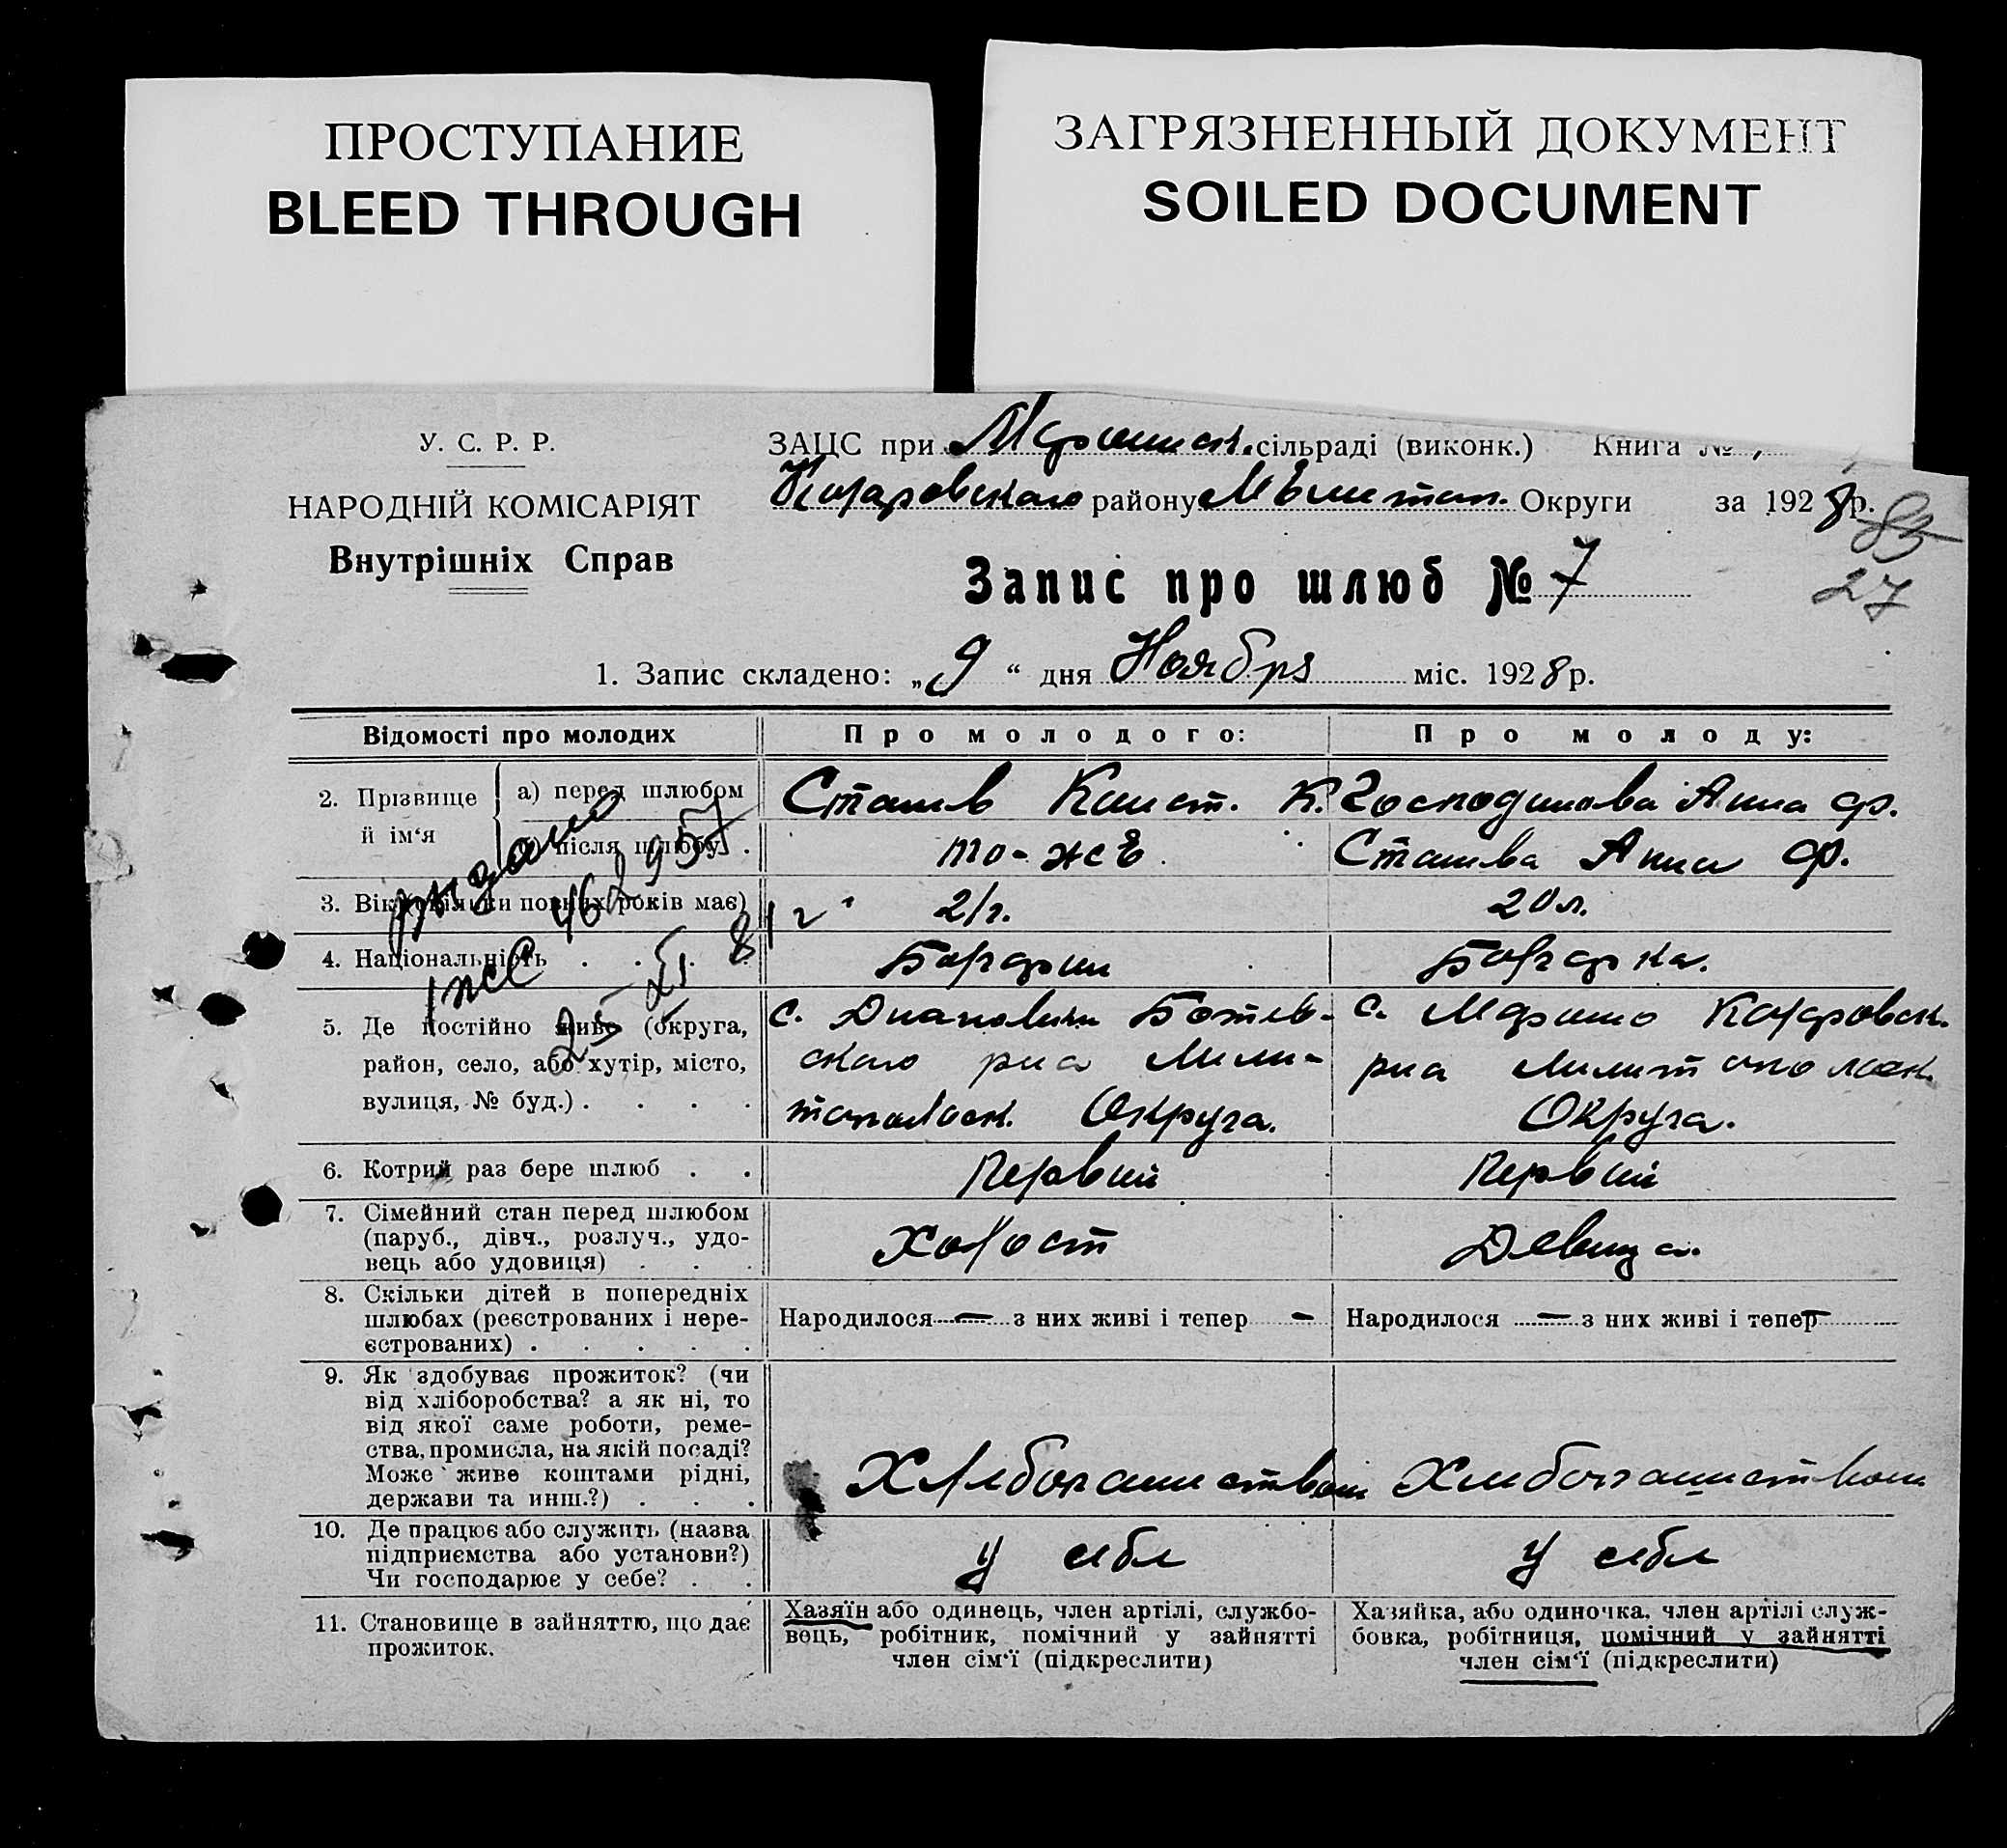 ПРОСТУПАНИЕ
BLEED THROUGH
ЗАГРЯЗНЕННЫЙ ДОКУМЕНТ
SOILED DOCUMENT
У. С. Р. Р.
НАРОДНІЙ КОМІСАРІЯТ
Внутрішніх Справ
ЗАЦС при сільраді (виконк.) Книга №
району Округи за 1928 р.
85
27
Запис про шлюб № 7
1. Запис складено: „9“ дня Ноября міс. 1928 р.
Відомості про молодих
Про молодого:
Про молоду:
2. Прізвище й ім‘я
а) перед шлюбом
Сташев Конст. К.
Господинова Анна Ф.
після шлюбу .
то-же
Сташева Анна Ф.
3. Вік (скільки повних років має)
21г.
20 л.
4. Національність . . . .
Болгарин
Болгарка.
5. Де постійно живе (округа,
район, село, або хутір, місто,
вулиця, № буд.) . . . .
с. Ботев-
ского р-на Мели-
топольск. Округа.
с.
р-на Мелитопольск.
Округа.
6. Котрий раз бере шлюб . .
Первий
Первий
7. Сімейний стан перед шлюбом
(паруб., дівч., розлуч., удо-
вець або удовиця) . . .
Холост
Девица.
8. Скільки дітей в попередніх
шлюбах (реєстрованих і нере-
єстрованих) . . . . .
Народилося — з них живі і тепер —
Народилося — з них живі і тепер —
9. Як здобуває прожиток? (чи
від хліборобства? а як ні, то
від якої саме роботи, реме-
ства, промисла, на якій посаді?
Може живе коштами рідні,
держави та инш.?) . . .
Хлебопашеством
Хлебопашеством
10. Де працює або служить (назва
підприємства або установи?)
Чи господарює у себе? . .
у себе
у себе
11. Становище в зайняттю, що дає
прожиток.
Хазяїн або одинець, член артілі, службо-
вець, робітник, помічний у зайнятті
член сім‘ї (підкреслити)
Хазяйка, або одиночка, член артілі служ-
бовка, робітниця, помічний у зайнятті
член сім‘ї (підкреслити)